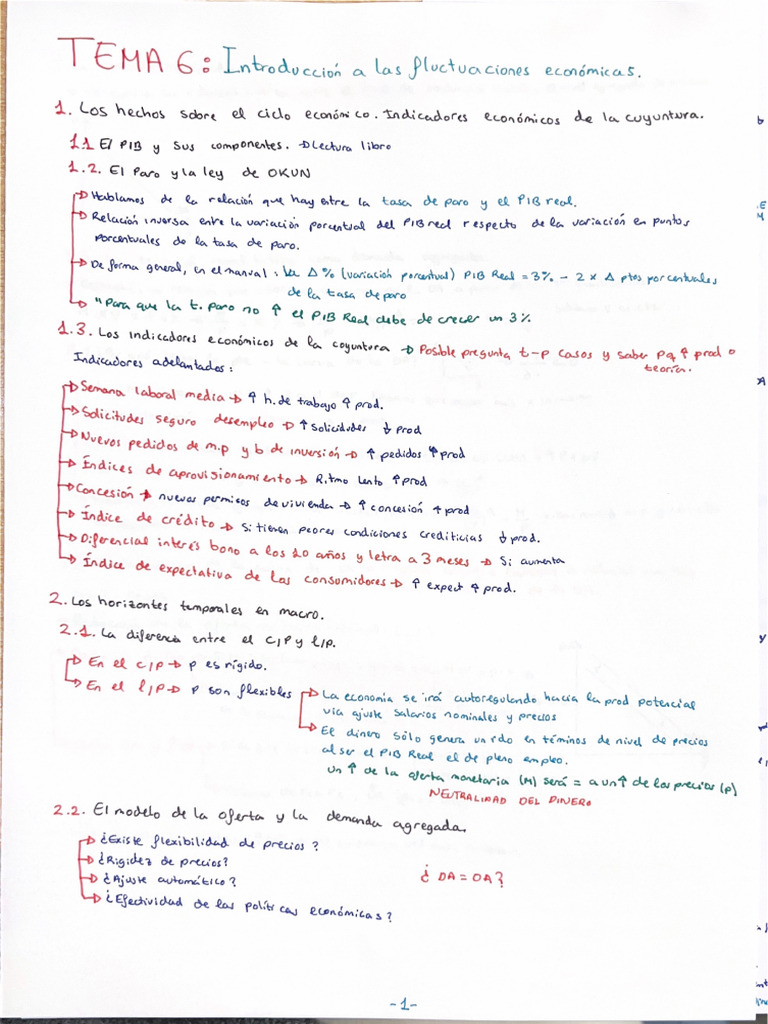 TEMA 6: Introducción a las fluctuaciones económicas.
1. Los hechos sobre el ciclo económico. Indicadores económicos de la cuyuntura.
1.1 El PIB y sus componentes. → Lectura libro
1.2. El Paro y la ley de OKUN
→ Hablamos de la relación que hay entre la tasa de paro y el PIB real.
→ Relación inversa entre la variación porcentual del PIB real respecto de la variación en puntos
porcentuales de la tasa de paro.
→ De forma general, en el manual: La Δ% (variación porcentual) PIB Real = 3% - 2 x Δ ptos porcentuales
de la tasa de paro
→ "Para que la t. paro no ↑ el PIB Real debe de crecer un 3%
1.3. Los indicadores económicos de la coyuntura → Posible pregunta t-p casos y saber pq ↑ prod o
teoría.
Indicadores adelantados:
→ Semana laboral media → ↑ h. de trabajo ↑ prod.
→ Solicitudes seguro desempleo → ↑ solicitudes ↓ prod
→ Nuevos pedidos de m.p y b de inversión → ↑ pedidos ↑ prod
→ Índices de aprovisionamiento → Ritmo lento ↑ prod
→ Concesión → nuevos permisos de vivienda → ↑ concesión ↑ prod.
→ Índice de crédito → Si tienen peores condiciones crediticias ↓ prod.
→ Diferencial interés bono a los 10 años y letra a 3 meses → Si aumenta
→ Índice de expectativa de los consumidores → ↑ expect ↑ prod.
2. Los horizontes temporales en macro.
2.1. La diferencia entre el c/p y l/p.
→ En el c/p → p es rígido.
→ En el l/p → p son flexibles
→ La economía se irá autoregulando hacia la prod potencial
vía ajuste salarios nominales y precios
→ El dinero sólo genera un rdo en téminos de nivel de precios
al ser el PIB Real el de pleno empleo.
un ↑ de la oferta monetaria (M) será = a un ↑ de los precios (p)
NEUTRALIDAD DEL DINERO
2.2. El modelo de la oferta y la demanda agregada.
→ ¿Existe flexibilidad de precios?
→ ¿Rigidez de precios?
→ ¿Ajuste automático?
→ ¿Efectividad de las políticas económicas?
¿DA = OA?
-1-